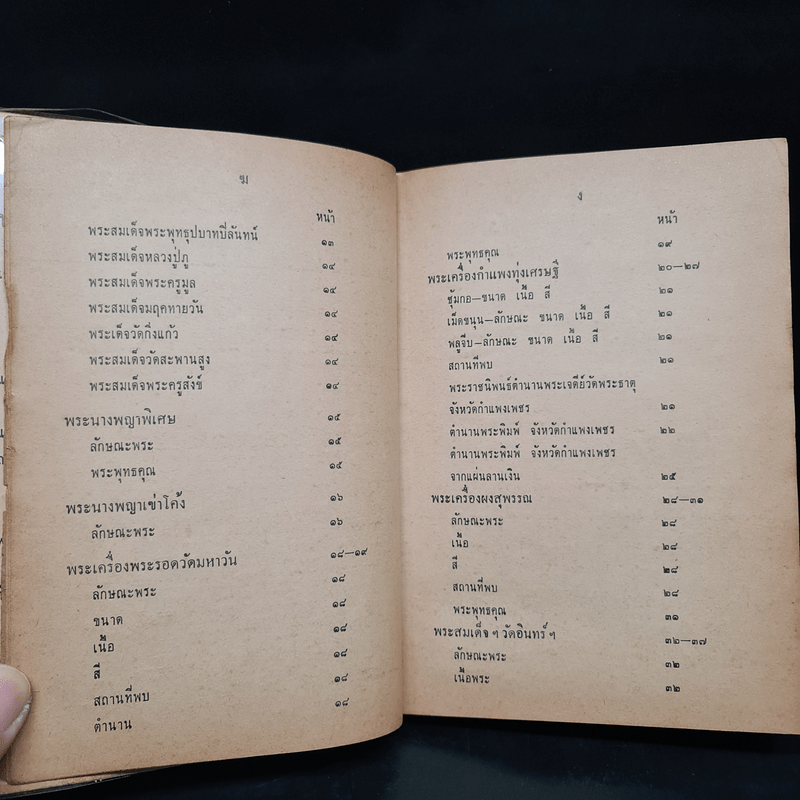 ฆ
หน้า
พระสมเด็จพระพุทธุปบาทปิลันทน์ ๑๓
พระสมเด็จหลวงปู่ภู ๑๔
พระสมเด็จพระครูมูล ๑๔
พระสมเด็จมฤคทายวัน ๑๔
พระเด็จวัดกิ่งแก้ว ๑๔
พระสมเด็จวัดสะพานสูง ๑๔
พระสมเด็จพระครูสังข์ ๑๔
พระนางพญาพิเศษ ๑๕
ลักษณะพระ ๑๕
พระพุทธคุณ ๑๕
พระนางพญาเข่าโค้ง ๑๖
ลักษณะพระ ๑๖
พระเครื่องพระรอดวัดมหาวัน ๑๘—๑๙
ลักษณะพระ ๑๘
ขนาด ๑๘
เนื้อ ๑๘
สี ๑๘
สถานที่พบ ๑๘
ตำนาน ๑๘
ง
หน้า
พระพุทธคุณ ๑๙
พระเครื่องกำแพงทุ่งเศรษฐี ๒๐—๒๗
ซุ้มกอ—ขนาด เนื้อ สี ๒๑
เม็ดขนุน—ลักษณะ ขนาด เนื้อ สี ๒๑
พลูจีบ—ลักษณะ ขนาด เนื้อ สี ๒๑
สถานที่พบ ๒๑
พระราชนิพนธ์ตำนานพระเจดีย์วัดพระธาตุ
จังหวัดกำแพงเพชร ๒๑
ตำนานพระพิมพ์ จังหวัดกำแพงเพชร ๒๒
ตำนานพระพิมพ์ จังหวัดกำแพงเพชร
จากแผ่นลานเงิน ๒๕
พระเครื่องผงสุพรรณ ๒๘—๓๑
ลักษณะพระ ๒๘
เนื้อ ๒๘
สี ๒๘
สถานที่พบ ๒๘
พระพุทธคุณ ๓๑
พระสมเด็จ ๆ วัดอินทร์ ๆ ๓๒—๓๗
ลักษณะพระ ๓๒
เนื้อพระ ๓๒